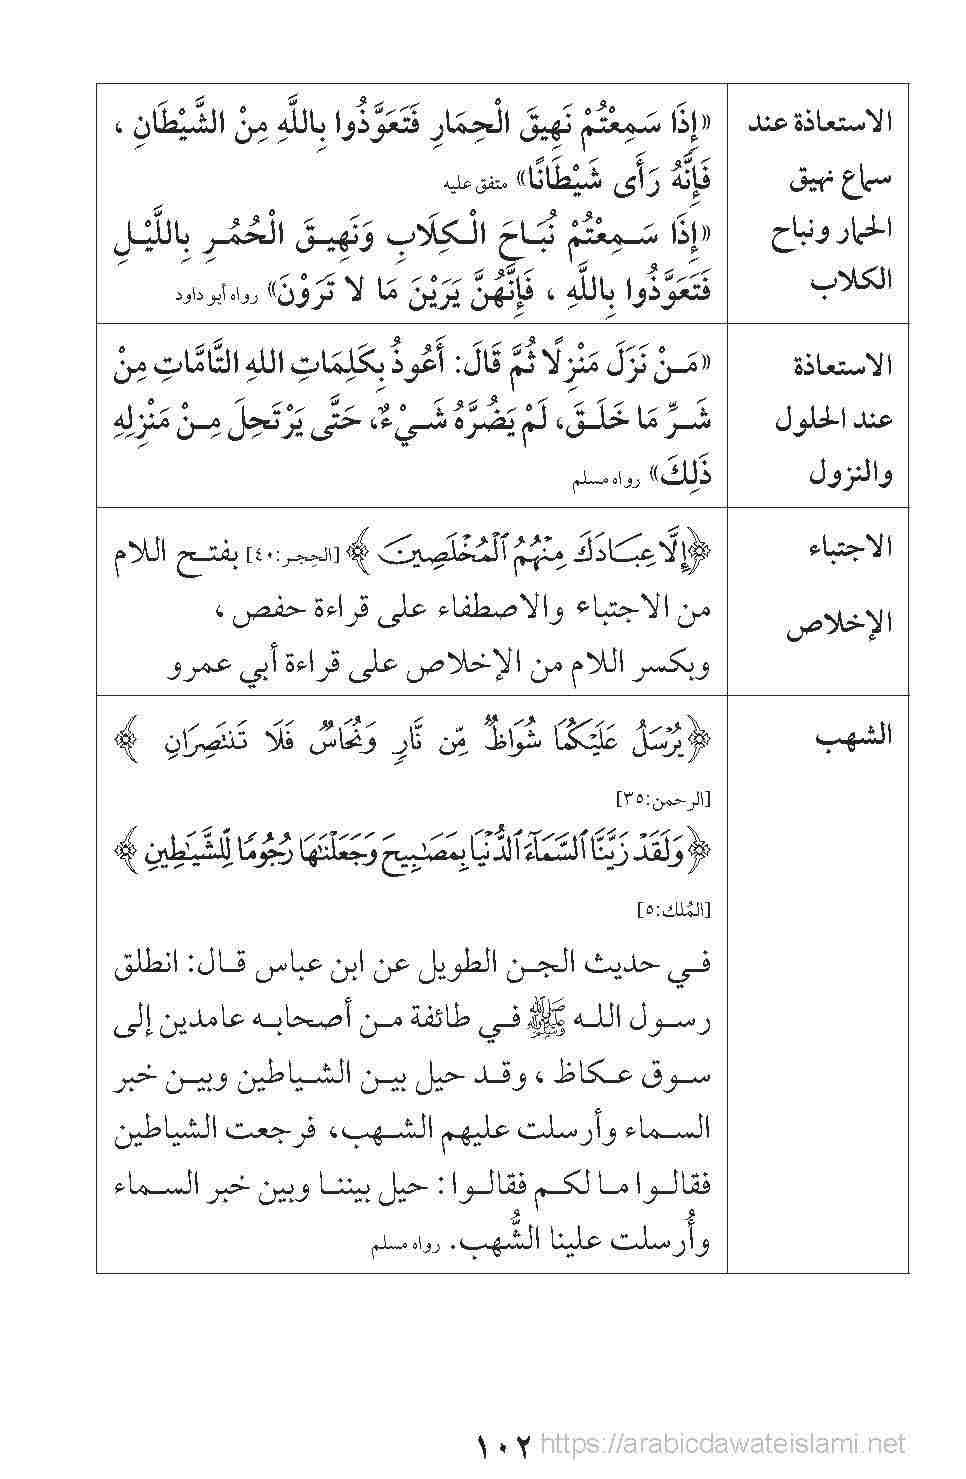 الاستعاذة عند
سماع نهيق
الحمار ونباح
الكلاب
«إِذَا سَمِعْتُمْ نَهِيقَ الْحِمَارِ فَتَعَوَّذُوا بِاللَّهِ مِنْ الشَّيْطَانِ ،
فَإِنَّهُ رَأَى شَيْطَانًا» متفق عليه
«إِذَا سَمِعْتُمْ نُبَاحَ الْكِلَابِ وَنَهِيقَ الْحُمُرِ بِاللَّيْلِ
فَتَعَوَّذُوا بِاللَّهِ ، فَإِنَّهُنَّ يَرَيْنَ مَا لا تَرَوْنَ» رواه أبو داود
الاستعاذة
عند الحلول
والنزول
«مَنْ نَزَلَ مَنْزِلًا ثُمَّ قَالَ: أَعُوذُ بِكَلِمَاتِ اللهِ التَّامَّاتِ مِنْ
شَرِّ مَا خَلَقَ، لَمْ يَضُرَّهُ شَيْءٌ، حَتَّى يَرْتَحِلَ مِنْ مَنْزِلِهِ
ذَلِكَ» رواه مسلم
الاجتباء
الإخلاص
﴿إِلَّا عِبَادَكَ مِنْهُمُ ٱلْمُخْلَصِينَ﴾ [الحِجر:٤٠] بفتح اللام
من الاجتباء والاصطفاء على قراءة حفص ،
وبكسر اللام من الإخلاص على قراءة أبي عمرو
الشهب
﴿يُرْسَلُ عَلَيْكُمَا شُوَاظٌ مِّن نَّارٍ وَنُحَاسٌ فَلَا تَنتَصِرَانِ﴾
[الرحمن:٣٥]
﴿وَلَقَدْ زَيَّنَّا ٱلسَّمَآءَ ٱلدُّنْيَا بِمَصَٰبِيحَ وَجَعَلْنَٰهَا رُجُومًا لِّلشَّيَٰطِينِ﴾
[المُلك:٥]
في حديث الجن الطويل عن ابن عباس قال: انطلق
رسول الله ﷺ في طائفة من أصحابه عامدين إلى
سوق عكاظ ، وقد حيل بين الشياطين وبين خبر
السماء وأرسلت عليهم الشهب، فرجعت الشياطين
فقالوا ما لكم فقالوا: حيل بيننا وبين خبر السماء
وأُرسلت علينا الشُّهب. رواه مسلم
١٠٢ https://arabicdawateislami.net